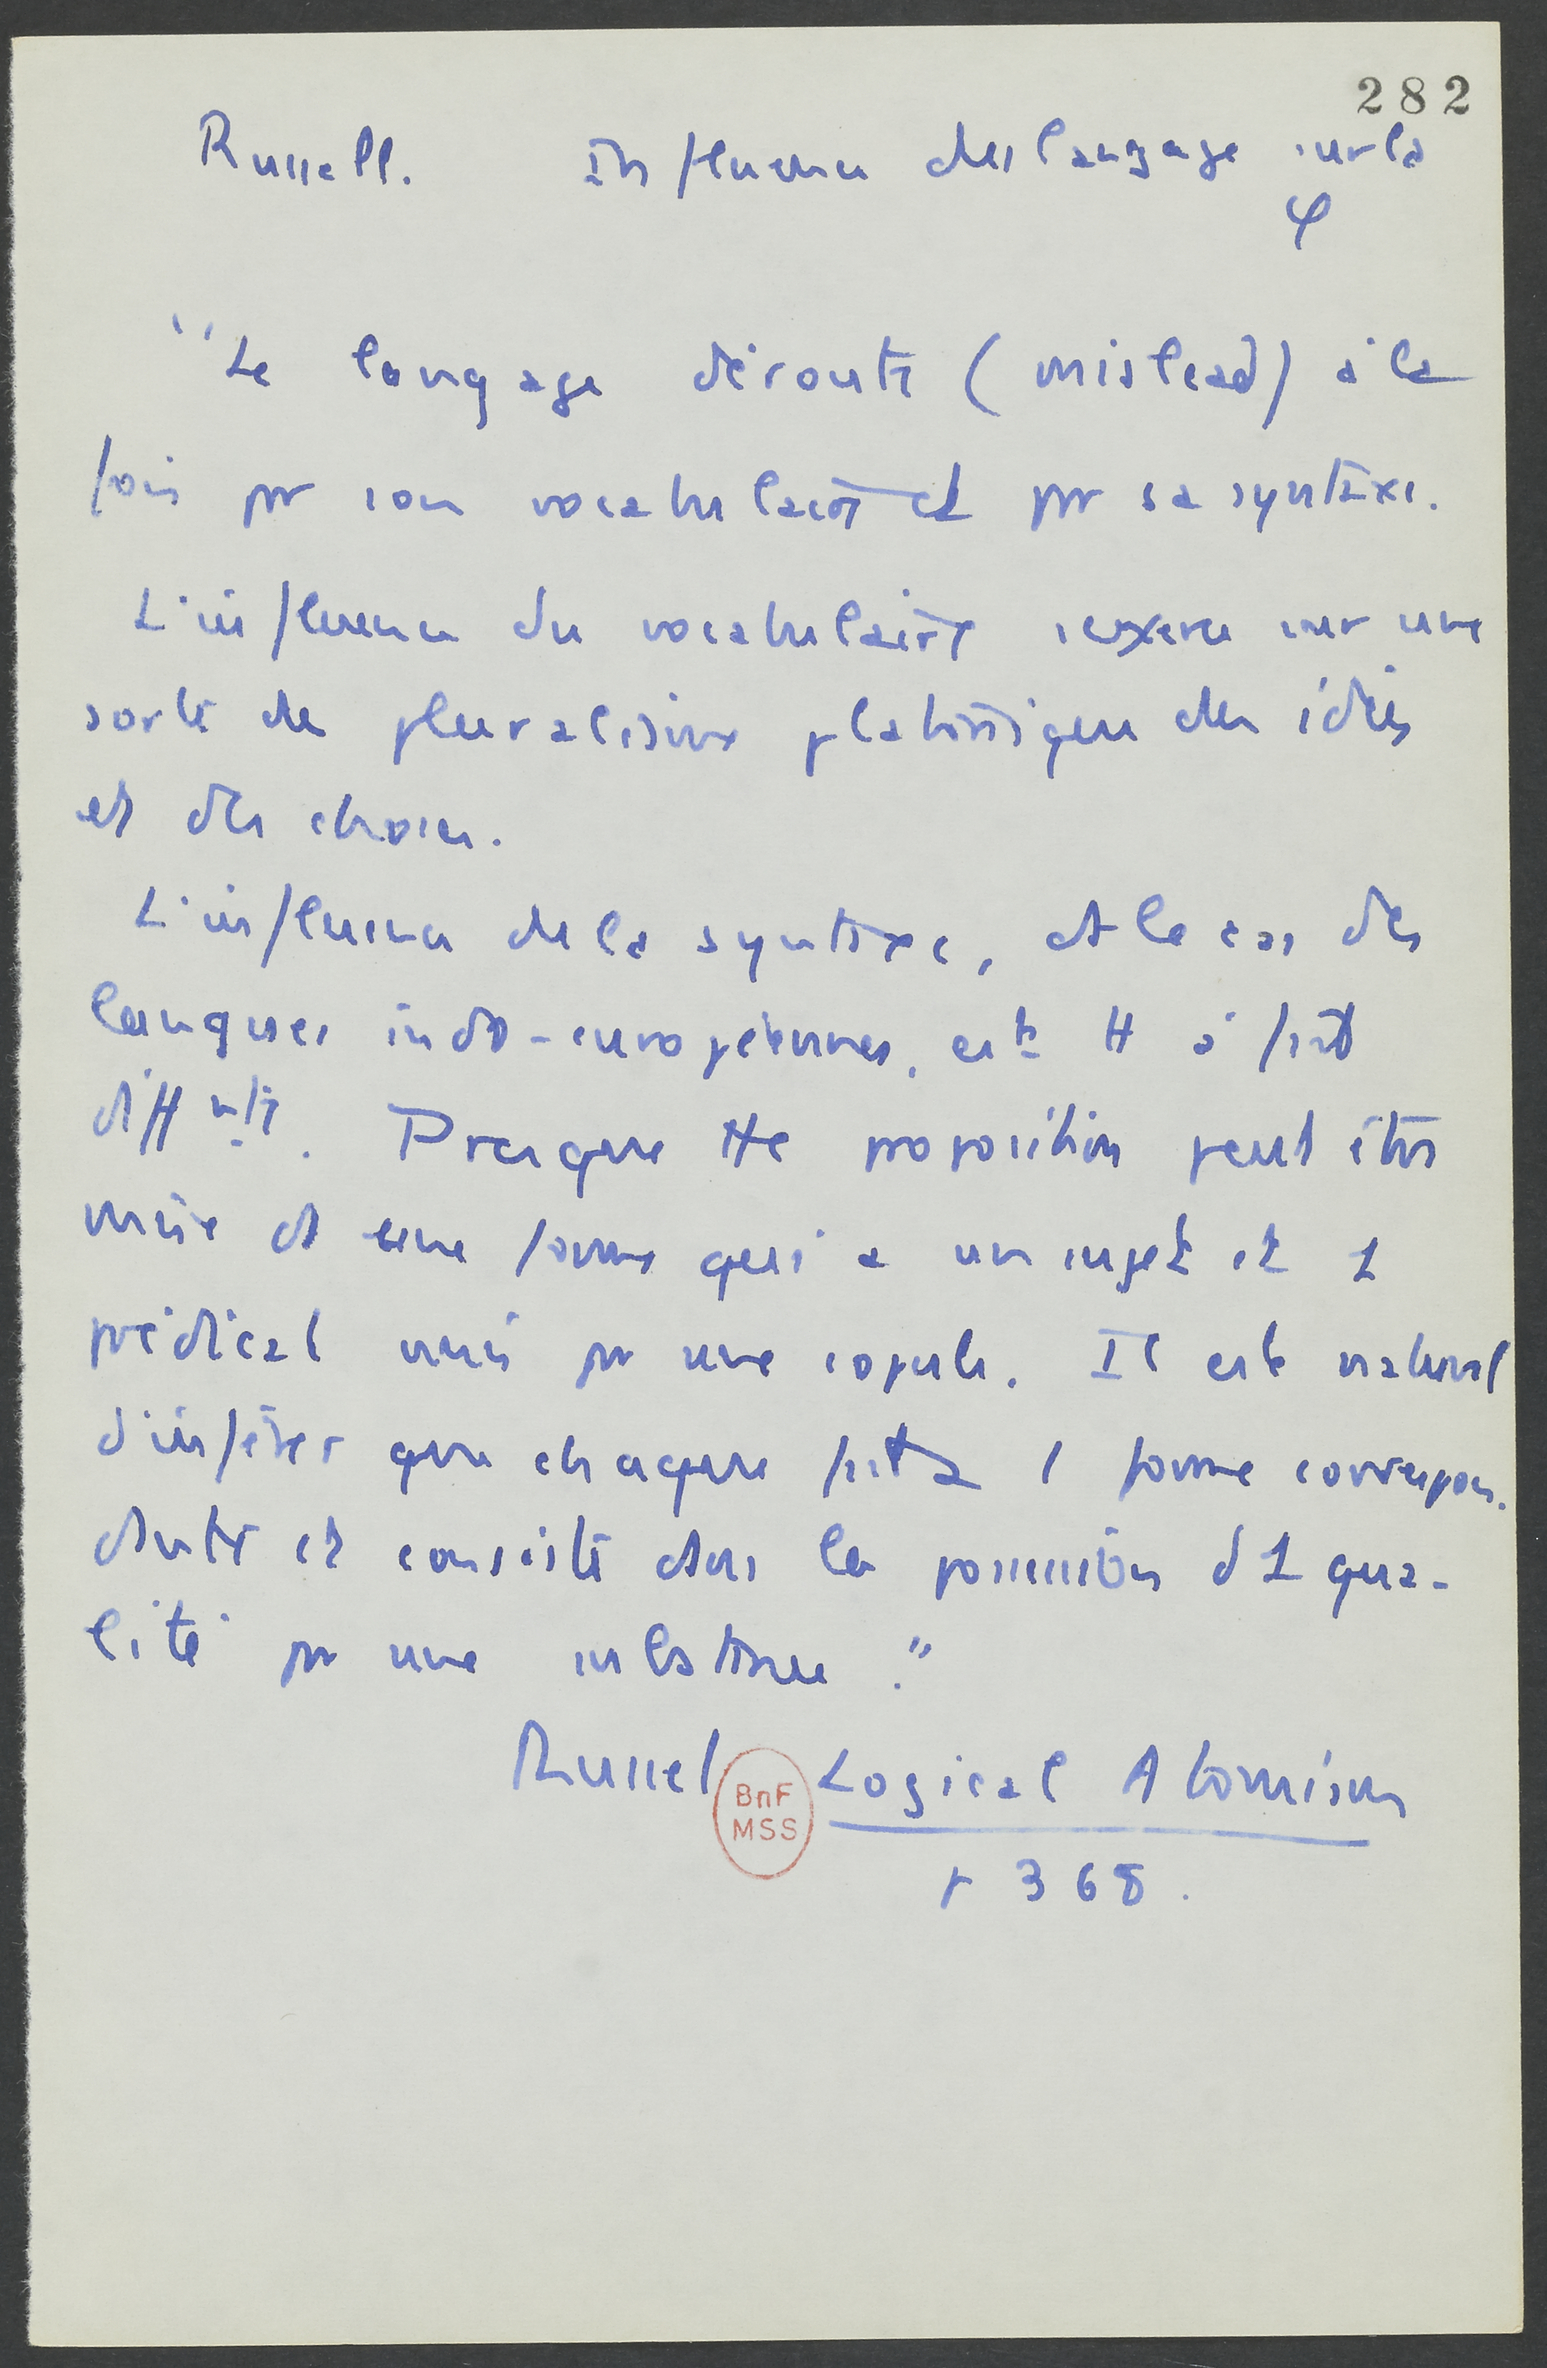 282
Russell. Influence du langage sur la
φ
"Le langage déroute (mislead) à la
fois pr son vocabulaire et pr sa syntaxe.
L'influence du vocabulaire s'exerce sur une
sorte de pluralisme platonique des idées
et des choses.
L'influence de la syntaxe, ds le cas des
langues indo-européennes, est tt à fait
difftte. Presque tte proposition peut être
mise ds une forme qui a un sujet et 1
prédicat unis pr une copule. Il est naturel
d'inférer que chaque fait a 1 forme correspon-
dante et consiste dans la possession d'1 qua-
lité pr une substance."
Russel Logical Atomism
BnF
MSS
p 368.